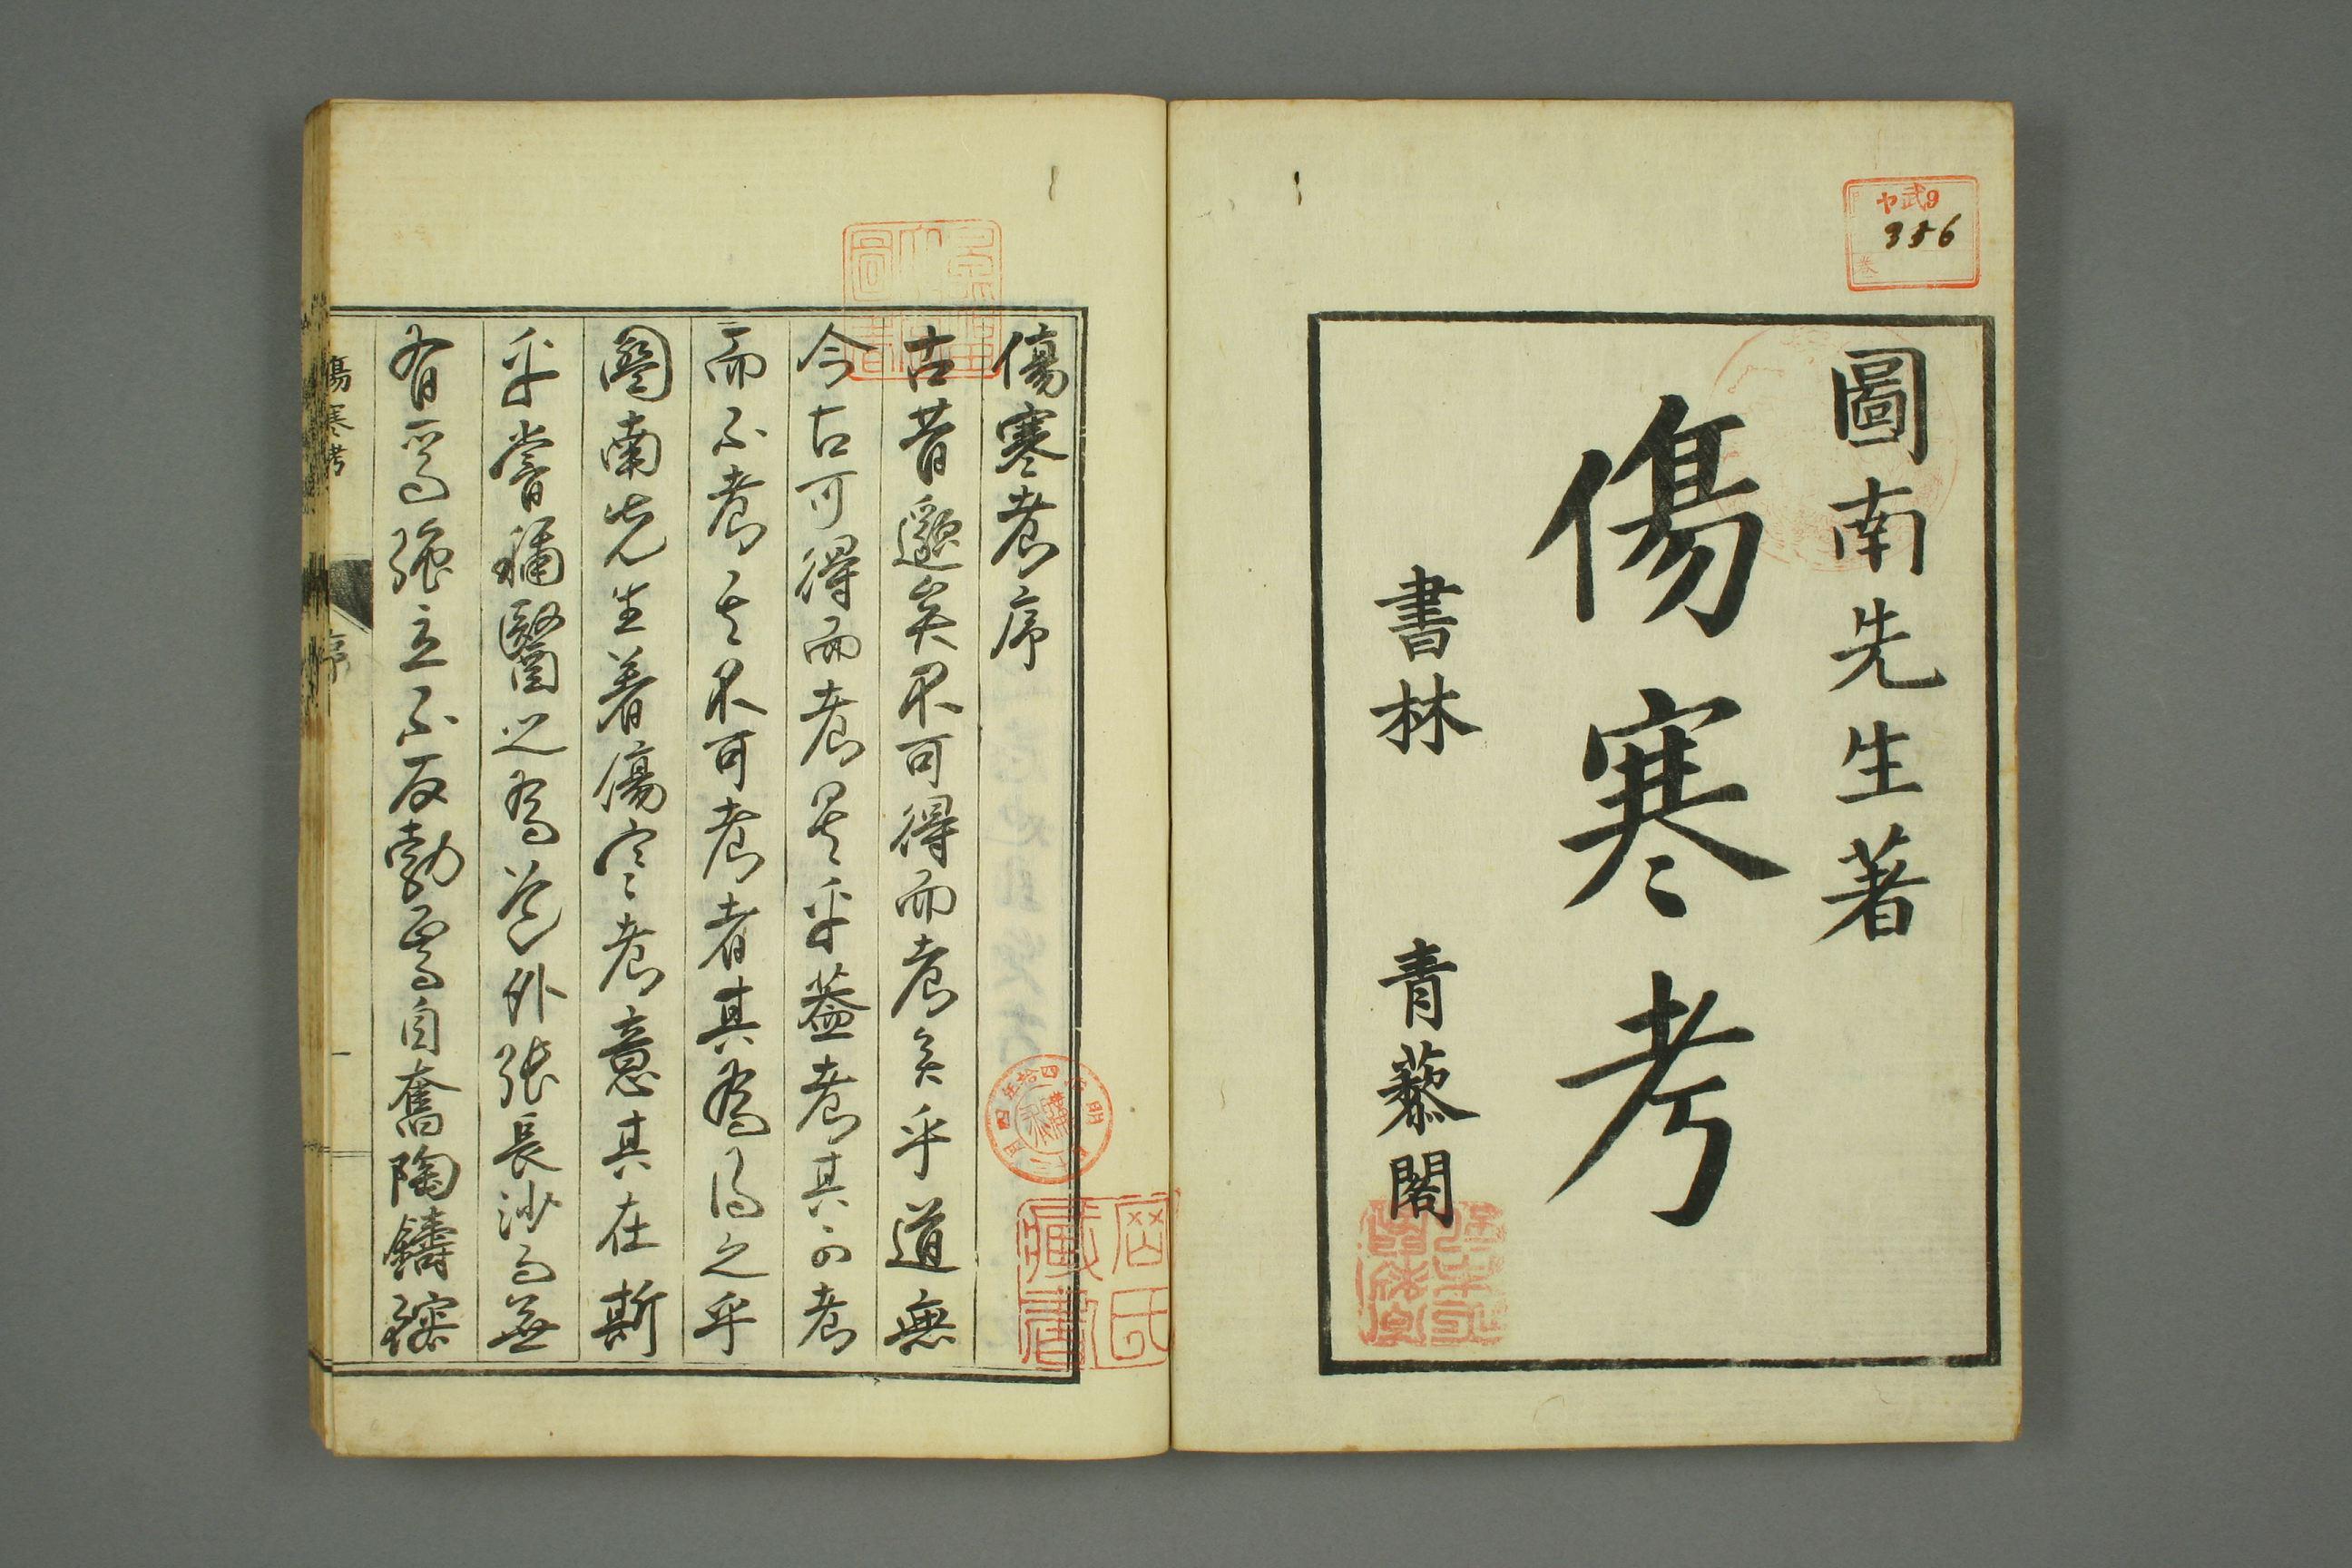 圖南先生著
傷寒考
書林 青藜閣
ヤ武9
356
卷
傷寒考序
古昔邈矣不可得而考矣乎道無
今古可得而考焉乎蓋考其可考
而不考其不可考者其為得之乎
圖南先生著傷寒考意其在斯
乎嘗稱醫之為道外張長沙而無
有焉強立不反勃焉自奮陶鑄
傷寒考
序
一
岡氏藏書